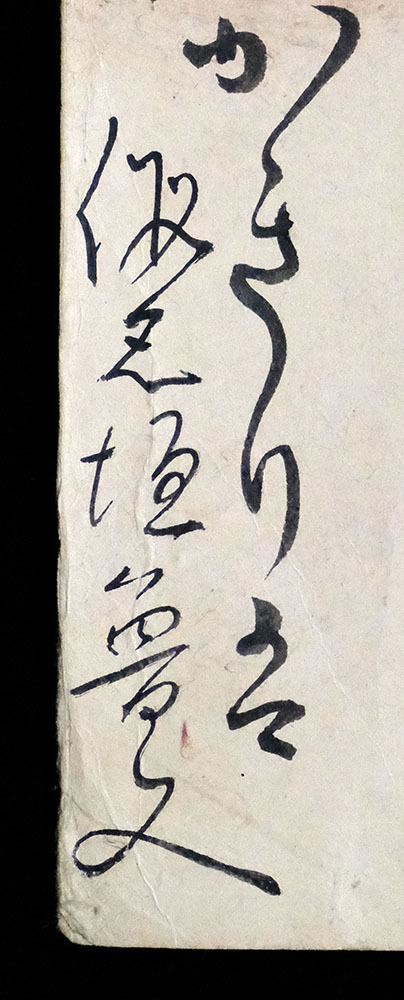 かきり
假名垣魯文